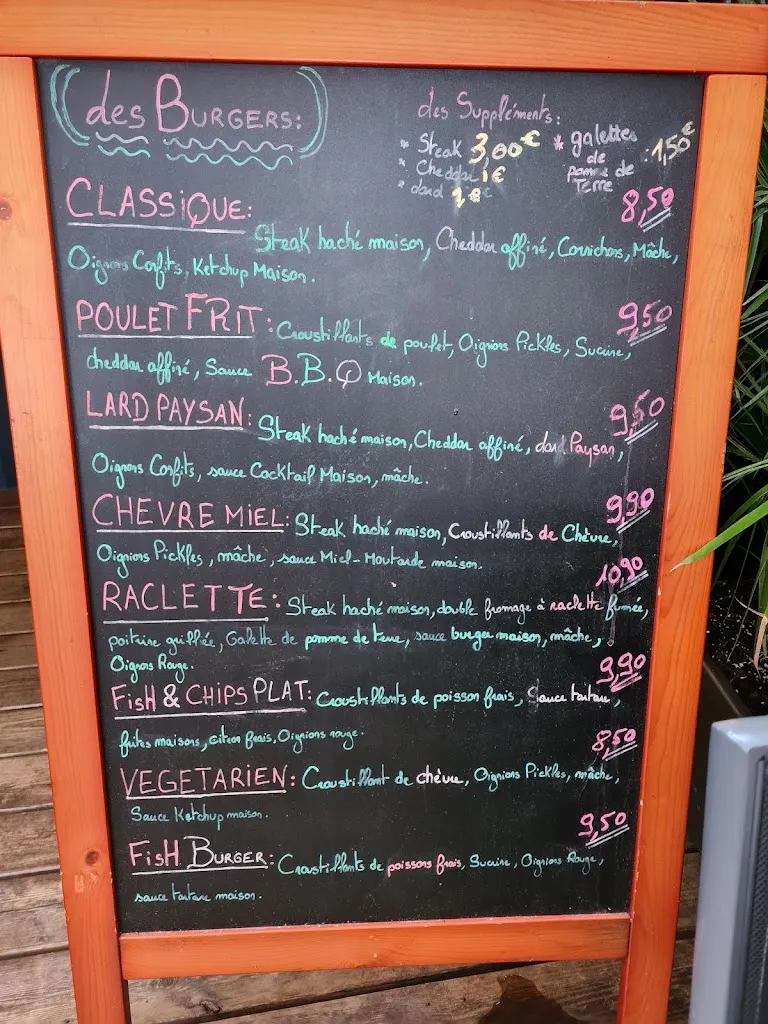 des BURGERS:
des Suppléments:
* Steak 3,00€
* Cheddar 1€
* dard
* galettes de pomme de Terre : 1,50€
CLASSIQUE: 8,50
Steak haché maison, Cheddar affiné, Cornichons, Mâche,
Oignons Confits, Ketchup Maison.
POULET FRIT: Croustillants de poulet, Oignions Pickles, Sucrine, 9,50
cheddar affiné, Sauce B.B.Q Maison.
LARD PAYSAN: 9,50
Steak haché maison, Cheddar affiné, dard Paysan,
Oignons Confits, sauce Cocktail Maison, mâche.
CHEVRE MIEL: Steak haché maison, Croustillants de Chèvre, 9,90
Oignions Pickles, mâche, sauce Miel-Moutarde maison.
RACLETTE: Steak haché maison, double fromage à raclette fumée, 10,90
poitrine grillée, Galette de pomme de terre, sauce burger maison, mâche,
Oignons Rouge.
FISH & CHIPS PLAT: Croustillants de poisson frais, Sauce tartare, 9,90
frites maisons, citron frais, Oignions rouge.
VEGETARIEN: Croustillant de chèvre, Oignions Pickles, mâche, 8,50
Sauce Ketchup maison.
FISH BURGER: Croustillants de poissons frais, Sucrine, Oignions Rouge, 9,50
sauce tartare maison.